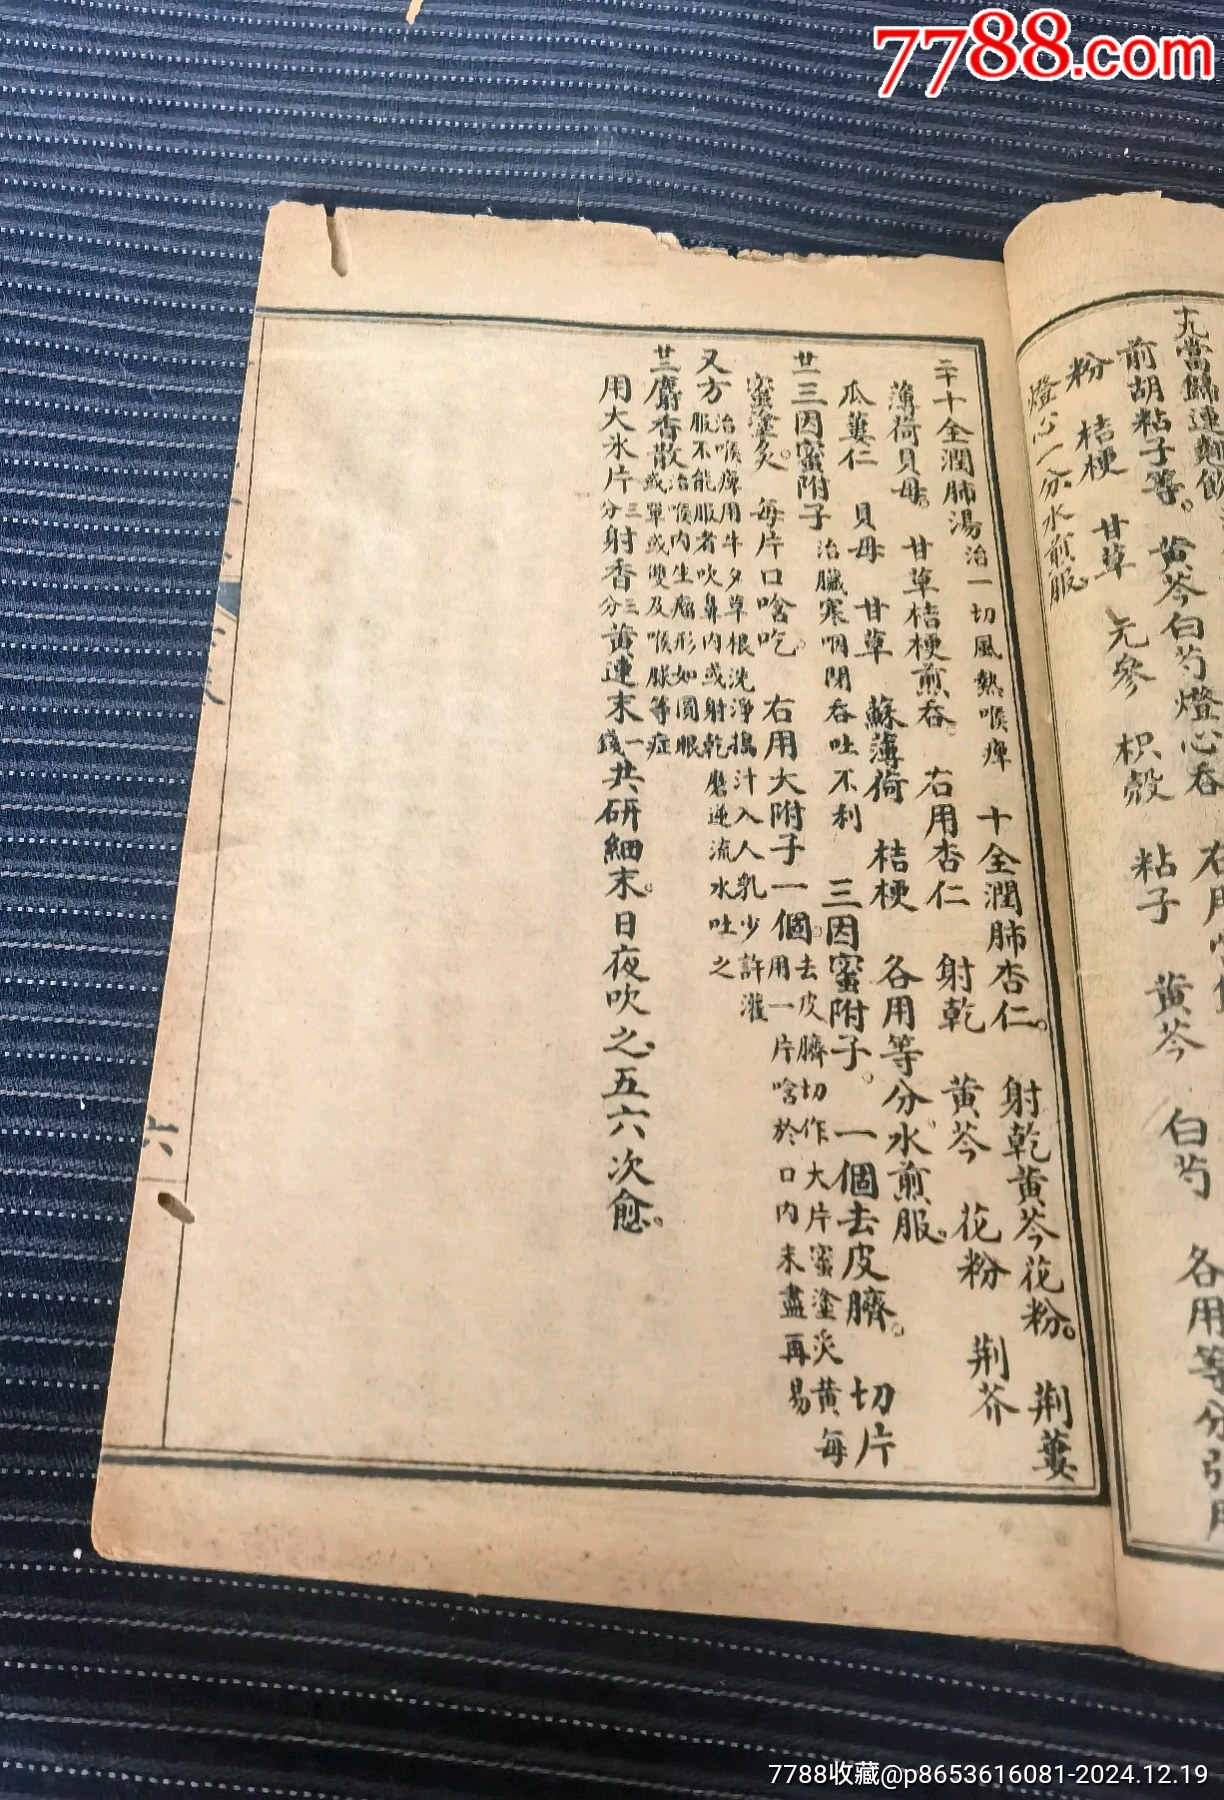 7788.com
十九當歸連翹飲
前胡粘子等。黃芩白芍燈心吞
右用當歸
粉 桔梗 甘草 元參 枳殼 粘子 黃芩 白芍 各用等分引用
燈心一分水煎服。
二十十全潤肺湯治一切風熱喉痺 十全潤肺杏仁。射乾黃芩花粉。荆蔞
薄荷貝母。甘草桔梗煎吞。右用杏仁 射乾 黃芩 花粉 荆芥
瓜蔞仁 貝母 甘草 蘇薄荷 桔梗 各用等分水煎服。
廿一三因蜜附子治臟寒咽閉吞吐不利 三因蜜附子。一個去皮臍。切片
蜜塗炙。每片口啥吃。右用大附子一個。去皮臍切作大片蜜塗炙黃每用一片啥於口內未盡再易
又方治喉痺用牛夕草根洗淨搗汁入人乳少許灌服不能服者吹鼻內或射乾磨逆流水吐之
廿二麝香散治喉內生瘤形如圓眼或單或雙及喉朘等症
用大氷片三分射香三分黃連末一錢共研細末。日夜吹之。五六次愈。
六
7788收藏@p8653616081-2024.12.19